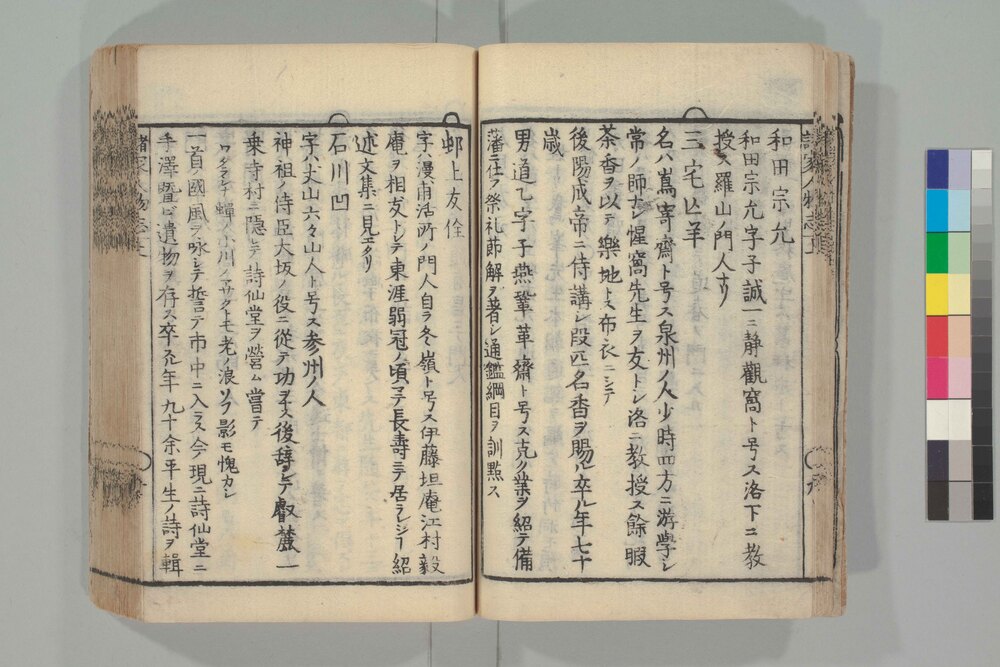 和田宗允
和田宗允字子誠一ニ静觀窩ト号ス洛下ニ教
授ス羅山ノ門人ナリ
三宅亡羊
名ハ嶌寄齋ト号ス泉州ノ人少時四方ニ游學シ
常ノ師ナシ惺窩先生ヲ友トシ洛ニ教授ス餘暇
茶香ヲ以テ樂地トス布衣ニシテ
後陽成帝ニ侍講シ段匹名香ヲ賜ル卒ル年七十
歳
男道乙字子燕鞏革齋ト号ス克ク業ヲ紹テ備
藩ニ仕フ祭礼節解ヲ著シ通鑑綱目ヲ訓點ス
邨上友佺
字ハ漫甫活所ノ門人自ラ冬嶺ト号ス伊藤坦庵江村毅
庵ヲ相友トシテ東涯弱冠ノ頃マテ長壽ニテ居ラレシー紹
述文集ニ見エタリ
石川凹
字ハ丈山六々山人ト号ス参州ノ人
神祖ノ侍臣大坂ノ役ニ從テ功ヲナス後辞シテ叡麓一
乗寺村ニ隠レテ詩仙堂ヲ營ム嘗テ
ワタラシナ蝉ノ小川ノ浅クトモ老ノ浪ソフ影モ愧カシ
一首ノ國風ヲ咏シテ誓テ市中ニ入ラス今現ニ詩仙堂ニ
手澤暨ヒ遺物ヲ存ス卒ル年九十余平生ノ詩ヲ輯